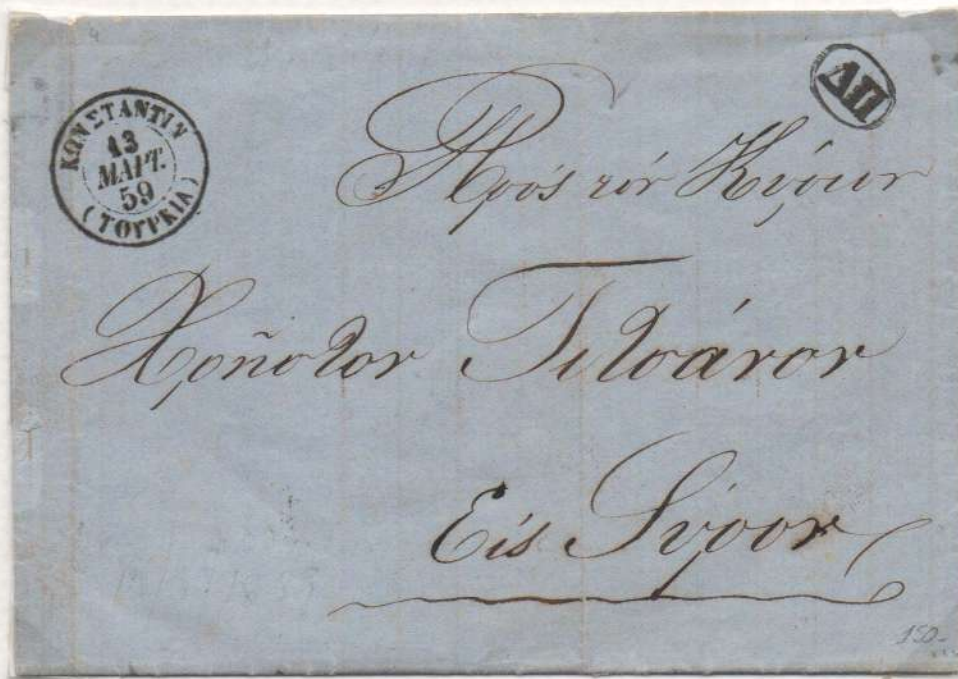 ΚΩΝΣΤΑΝΤΙΝ
13
ΜΑΡΤ.
59
(ΤΟΥΡΚΙΑ)
ΔΠ
Πρὸς τὸν Κύριον
Χρῆστον
Εἰς Σύρον
150-